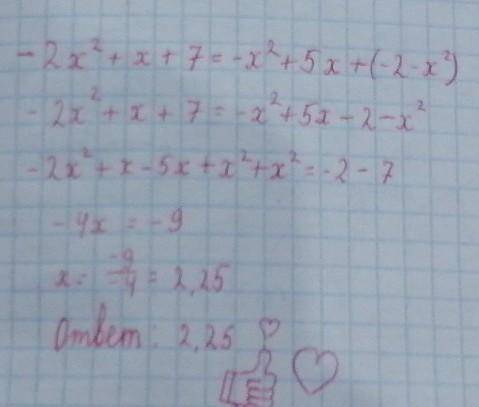 -2x² + x + 7 = -x² + 5x + (-2 - x²)
-2x² + x + 7 = -x² + 5x - 2 - x²
-2x² + x - 5x + x² + x² = -2 - 7
-4x = -9
x = -9/-4 = 2,25
Ответ: 2,25